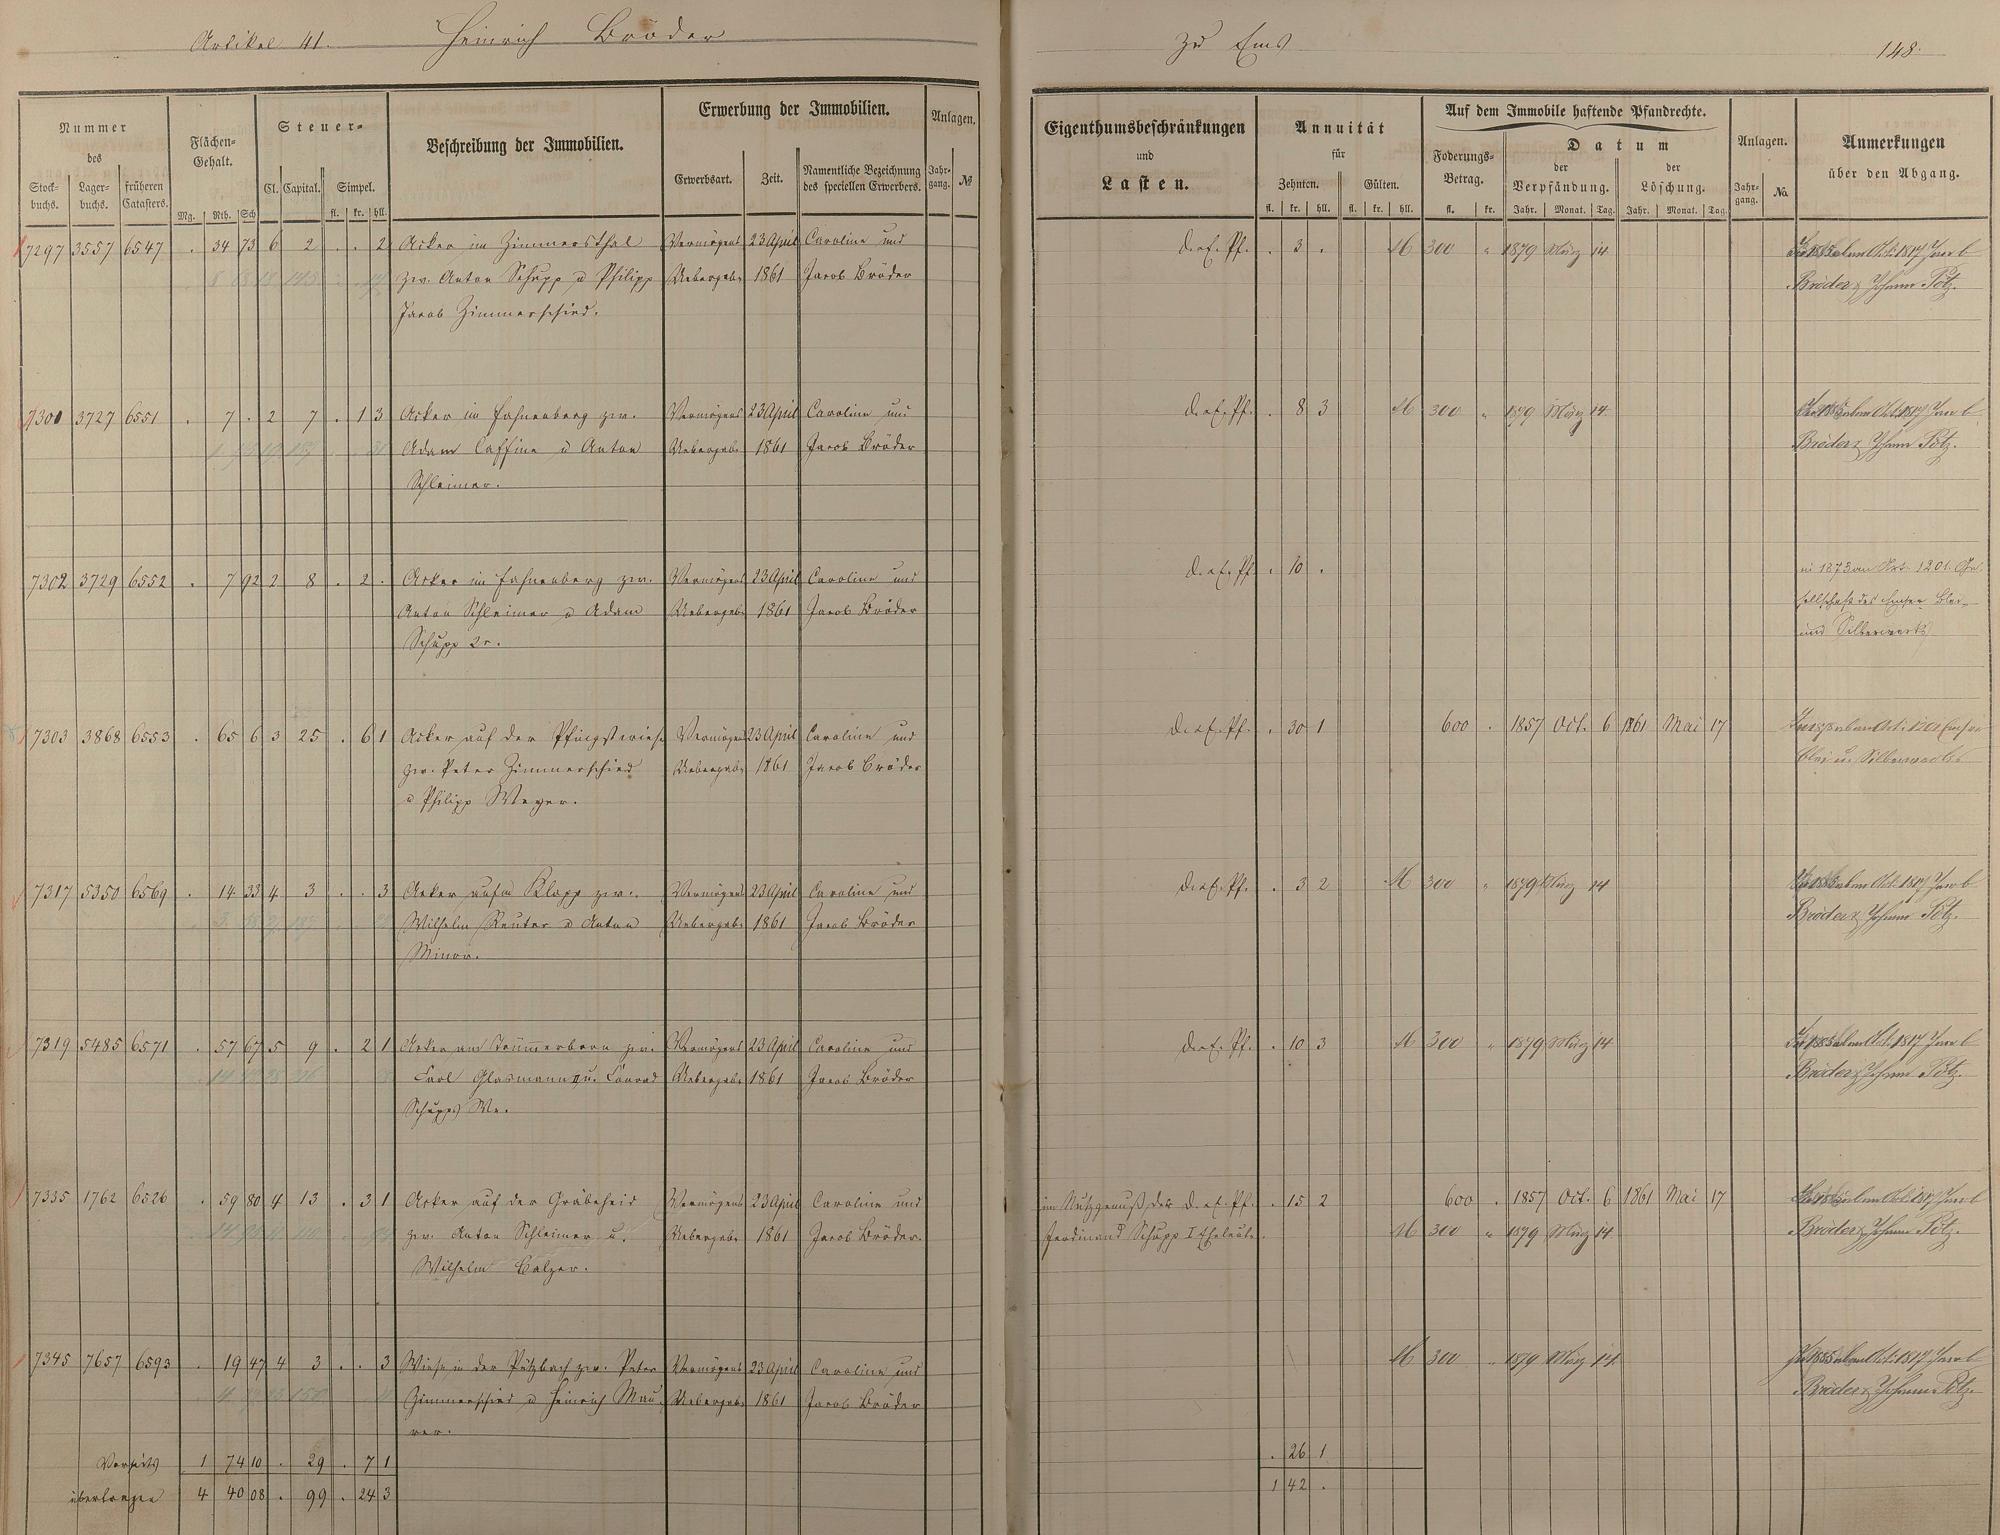 Artikel 41. Heinrich Bröder
zu Ems 148.
Nummer des
Stockbuchs. Lagerbuchs. früheren Catasters.
Flächen-Gehalt.
Mg. Rth. Sch
Steuer-
Cl. Capital. Simpel.
fl. kr. hll.
Beschreibung der Immobilien.
Erwerbung der Immobilien.
Erwerbsart. Zeit. Namentliche Bezeichnung des speciellen Erwerbers.
Anlagen.
Jahrgang. №
Eigenthumsbeschränkungen und Lasten.
Annuität für
Zehnten. Gülten.
fl. kr. hll. fl. kr. hll.
Auf dem Immobile haftende Pfandrechte.
Foderungs-Betrag. Datum
der Verpfändung. der Löschung.
fl. kr. Jahr. Monat. Tag. Jahr. Monat. Tag.
Anlagen.
Jahrgang. No.
Anmerkungen über den Abgang.
7297 3557 6547 . 34 73 6 2 . . 2 Acker im Zimmersthal Vermögens 23 April Caroline und D. ex. Pf. . 3 . M 300 " 1879 März 14
zw. Anton Schupp u Philipp Uebergabe 1861 Jacob Bröder Bröder & Johann Pötz.
Jacob Zimmerschied.
7301 3727 6551 . 7 . 2 7 . 1 3 Acker im Fahnenberg zw. Vermögens 23 April Caroline und D. ex. Pf. . 8 3 M 300 " 1879 März 14
Adam Caffine u Anton Uebergabe 1861 Jacob Bröder Bröder & Johann Pötz.
Schleimer.
7302 3729 6552 . 7 92 2 8 . 2 . Acker im Fahnenberg zw. Vermögens 23 April Caroline und D. ex. Pf. . 10 . in 1873 an Art. 1201. Ge-
Anton Schleimer u Adam Uebergabe 1861 Jacob Bröder sellschaft des Emser Blei-
Schupp 2r. und Silberwerks
7303 3868 6553 . 65 6 3 25 . 6 1 Acker auf der Pfingstwiese Vermögens 23 April Caroline und D. ex. Pf. . 30 1 600 . 1857 Oct. 6 1861 Mai 17
zw. Peter Zimmerschied Uebergabe 1861 Jacob Bröder Blei u. Silberwerks
u Philipp Weyer.
7317 5350 6569 . 14 33 4 3 . . 3 Acker aufm Klopp zw. Vermögens 23 April Caroline und D. ex. Pf. . 3 2 M 300 " 1879 März 14
Wilhelm Reuter u Anton Uebergabe 1861 Jacob Bröder Bröder & Johann Pötz.
Minor.
7319 5485 6571 . 57 67 5 9 . 2 1 Acker am zw. Vermögens 23 April Caroline und D. ex. Pf. . 10 3 M 300 " 1879 März 14
Carl Glasmann II u. Conrad Uebergabe 1861 Jacob Bröder Bröder & Johann Pötz.
Schupps We.
7335 1762 6526 . 59 80 4 13 . 3 1 Acker auf der Vermögens 23 April Caroline und im Nutzgenuß der D. ex. Pf. . 15 2 600 . 1857 Oct. 6 1861 Mai 17
zw. Anton Schleimer u. Uebergabe 1861 Jacob Bröder. Ferdinand Schupp I Eheleute. M 300 " 1879 März 14 Bröder & Johann Pötz.
Wilhelm Balzer.
7345 7657 6593 . 19 47 4 3 . . 3 Wiese in der Pützbach zw. Peter Vermögens 23 April Caroline und M 300 " 1879 März 14
Zimmerschied u Heinrich Mau- Uebergabe 1861 Jacob Bröder Bröder & Johann Pötz.
rer.
Vorseits 1 74 10 . 29 . 7 1 . 26 1
übertragen 4 40 08 . 99 . 24 3 1 42 .